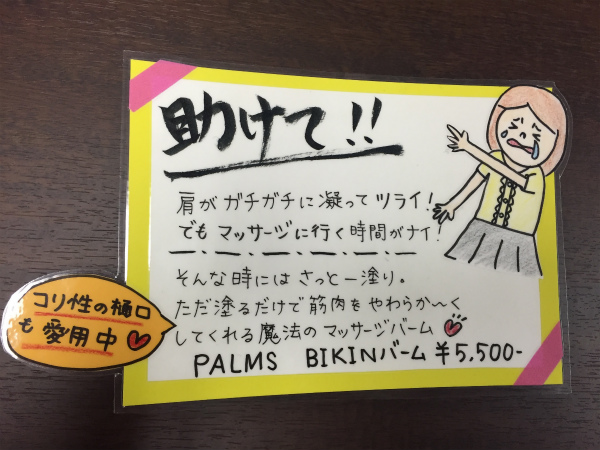 助けて!!
肩がガチガチに凝ってツライ!
でもマッサージに行く時間がナイ!
そんな時にはさっと一塗り。
ただ塗るだけで筋肉をやわらか〜く
してくれる魔法のマッサージバーム
PALMS BIKINバーム ¥5,500-
コリ性の樋口
も愛用中